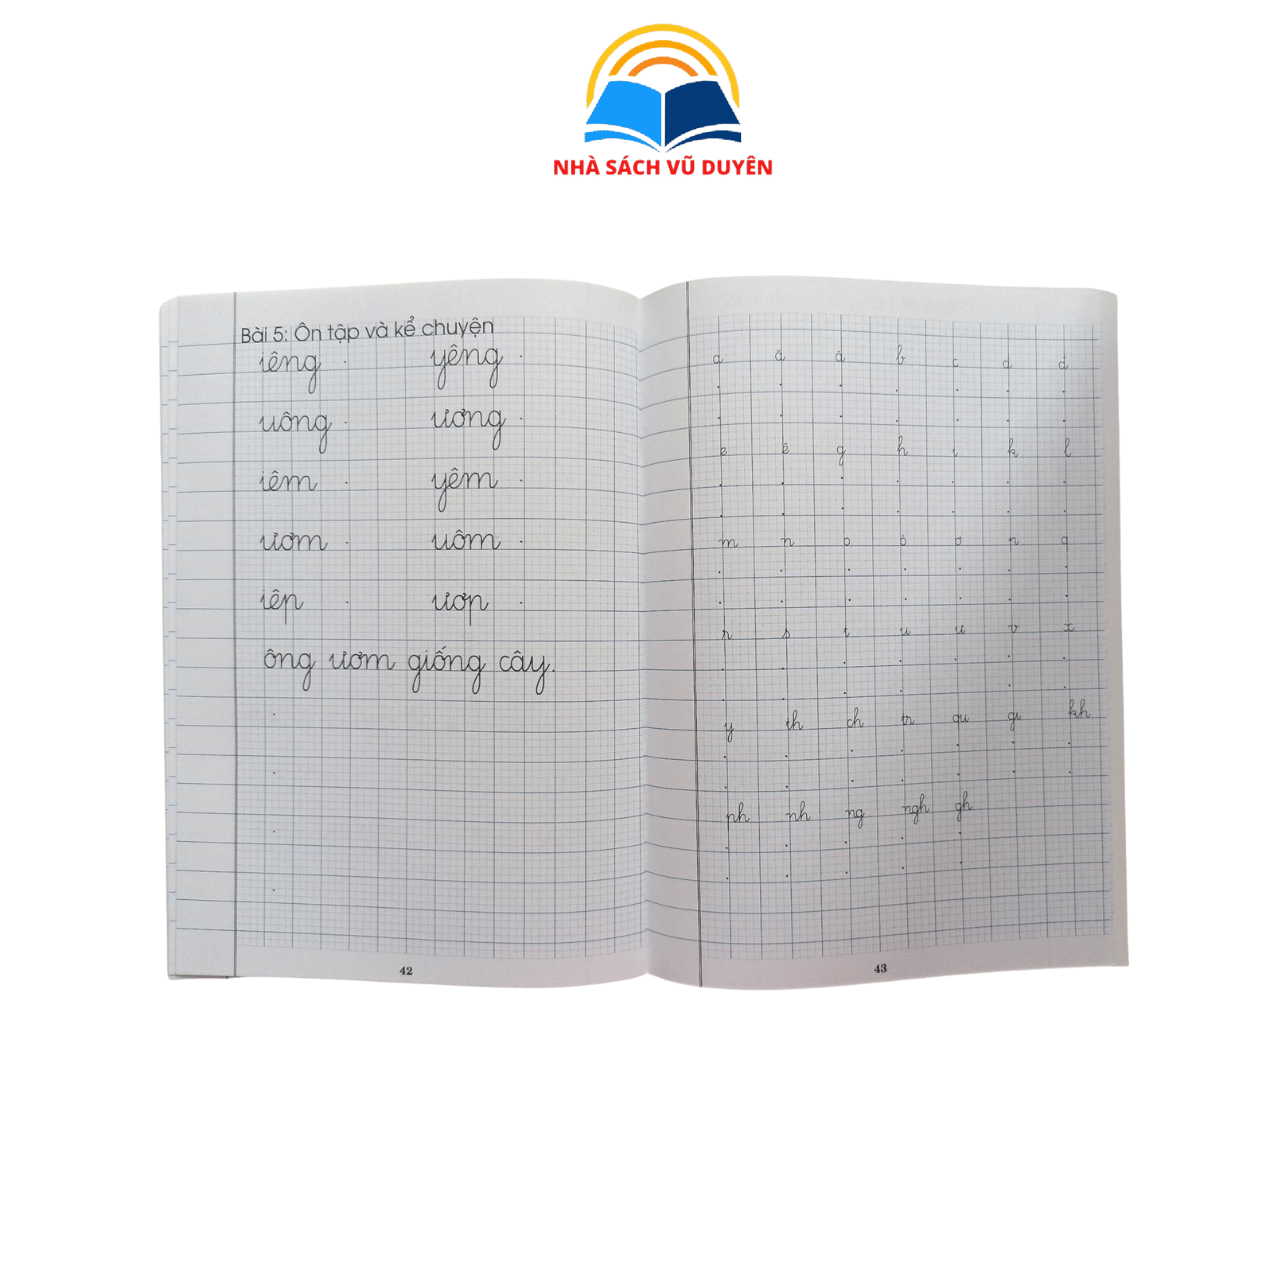 NHÀ SÁCH VŨ DUYÊN
Bài 5: Ôn tập và kể chuyện
iêng yêng
uông ương
iêm yêm
ươm uôm
iêp ươp
ông ươm giống cây.
42
a ă â b c d đ
e ê g h i k l
m n o ô ơ p q
r s t u ư v x
y th ch tr qu gi kh
ph nh ng ngh gh
43